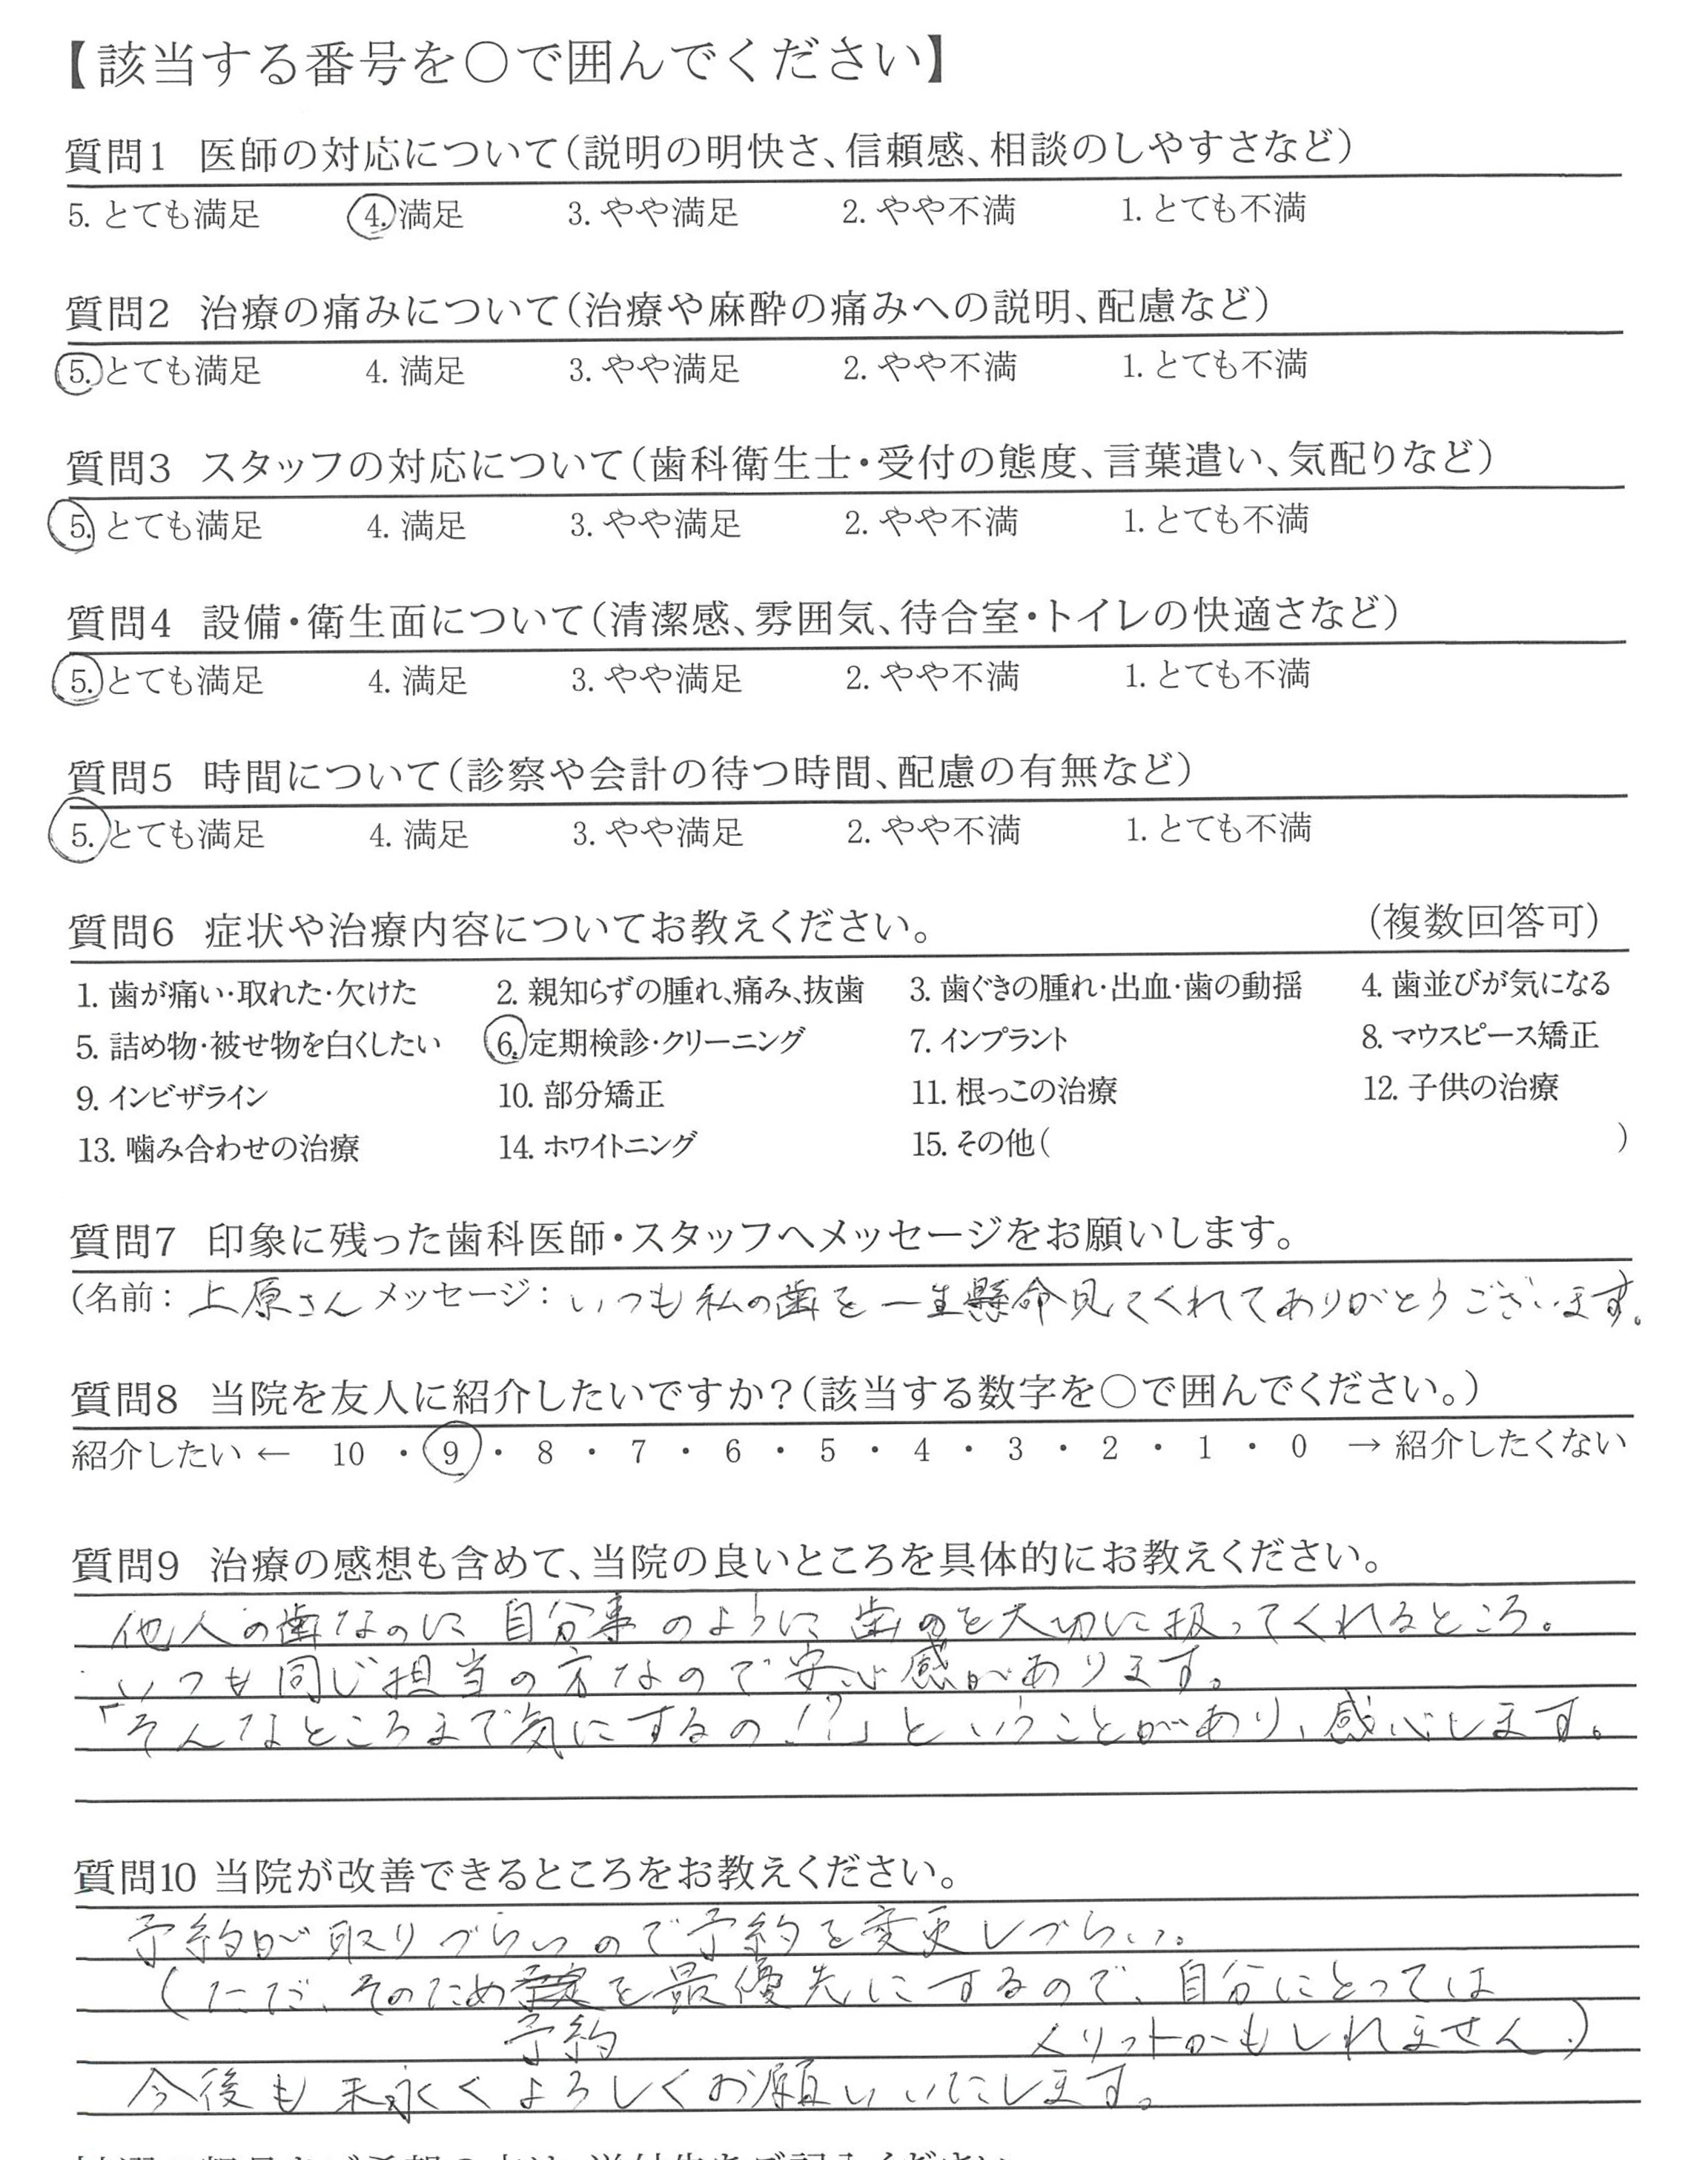 【該当する番号を○で囲んでください】
質問1 医師の対応について（説明の明快さ、信頼感、相談のしやすさなど）
5. とても満足 4. 満足 3. やや満足 2. やや不満 1. とても不満
質問2 治療の痛みについて（治療や麻酔の痛みへの説明、配慮など）
5. とても満足 4. 満足 3. やや満足 2. やや不満 1. とても不満
質問3 スタッフの対応について（歯科衛生士・受付の態度、言葉遣い、気配りなど）
5. とても満足 4. 満足 3. やや満足 2. やや不満 1. とても不満
質問4 設備・衛生面について（清潔感、雰囲気、待合室・トイレの快適さなど）
5. とても満足 4. 満足 3. やや満足 2. やや不満 1. とても不満
質問5 時間について（診察や会計の待つ時間、配慮の有無など）
5. とても満足 4. 満足 3. やや満足 2. やや不満 1. とても不満
質問6 症状や治療内容についてお教えください。 （複数回答可）
1. 歯が痛い・取れた・欠けた 2. 親知らずの腫れ、痛み、抜歯 3. 歯ぐきの腫れ・出血・歯の動揺 4. 歯並びが気になる
5. 詰め物・被せ物を白くしたい 6. 定期検診・クリーニング 7. インプラント 8. マウスピース矯正
9. インビザライン 10. 部分矯正 11. 根っこの治療 12. 子供の治療
13. 噛み合わせの治療 14. ホワイトニング 15. その他（ ）
質問7 印象に残った歯科医師・スタッフへメッセージをお願いします。
（名前：上原さん メッセージ：いつも私の歯を一生懸命見てくれてありがとうございます。
質問8 当院を友人に紹介したいですか？（該当する数字を○で囲んでください。）
紹介したい ← 10 ・ 9 ・ 8 ・ 7 ・ 6 ・ 5 ・ 4 ・ 3 ・ 2 ・ 1 ・ 0 → 紹介したくない
質問9 治療の感想も含めて、当院の良いところを具体的にお教えください。
他人の歯なのに自分事のように歯のを大切に扱ってくれるところ。
いつも同じ担当の方なので安心感があります。
「そんなところまで気にするの！？」ということがあり、感心します。
質問10 当院が改善できるところをお教えください。
予約が取りづらいので予約を変更しづらい。
（ただ、そのため予定を最優先にするので、自分にとっては
予約 メリットかもしれません。）
今後も末永くよろしくお願いいたします。